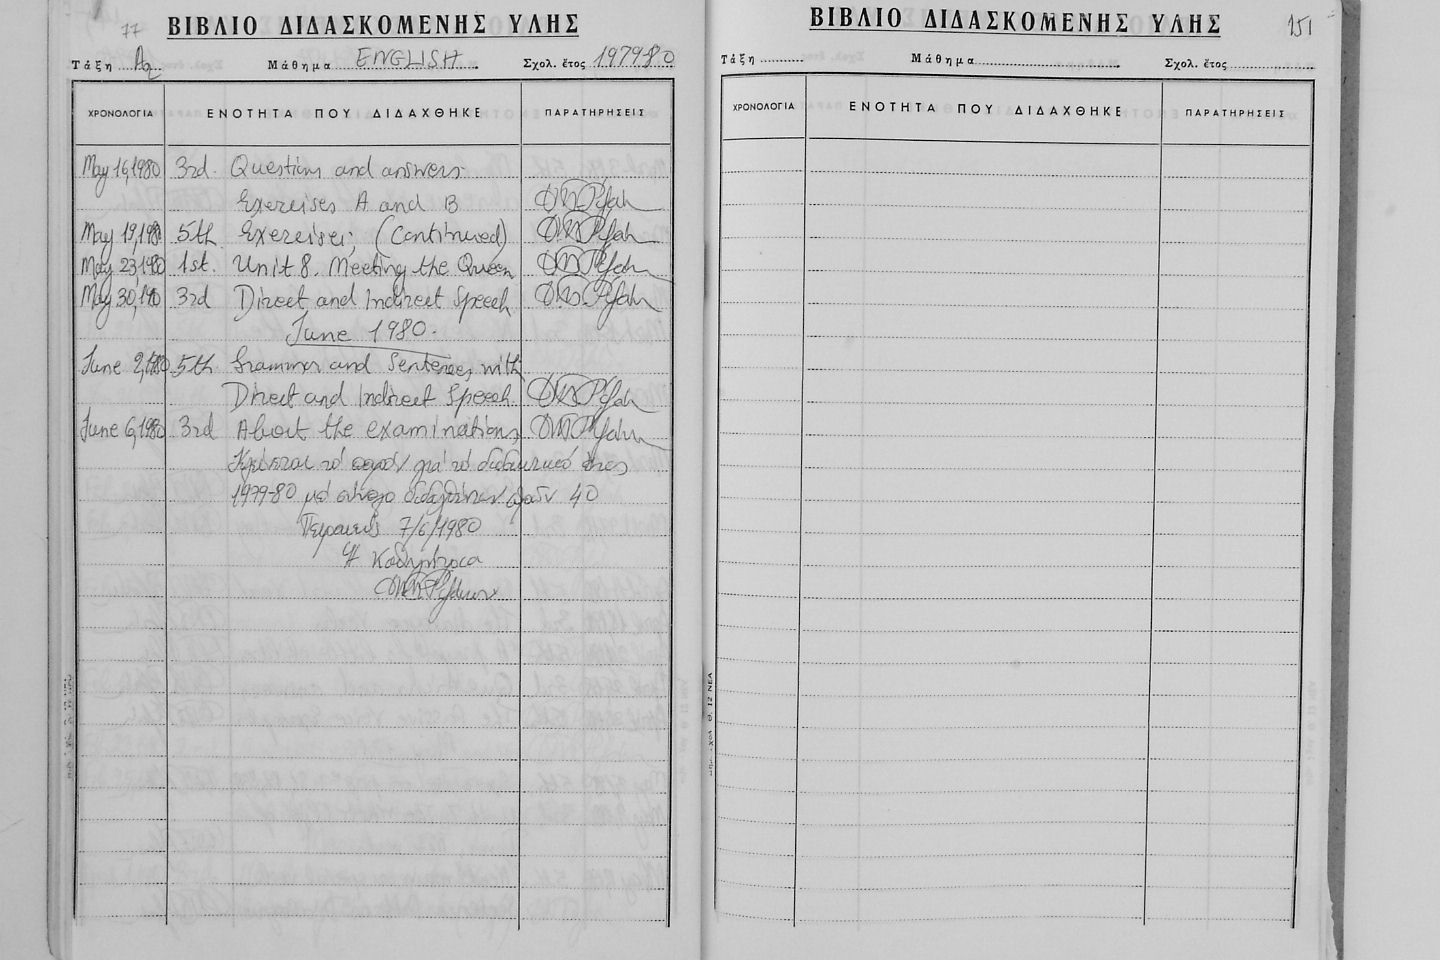 77
ΒΙΒΛΙΟ ΔΙΔΑΣΚΟΜΕΝΗΣ ΥΛΗΣ
Τάξη Α2 Μάθημα ENGLISH Σχολ. έτος 1979-80
ΧΡΟΝΟΛΟΓΙΑ ΕΝΟΤΗΤΑ ΠΟΥ ΔΙΔΑΧΘΗΚΕ ΠΑΡΑΤΗΡΗΣΕΙΣ
May 16,1980 3rd. Questions and answers
Exercises A and B
May 19,1980 5th Exercises, (Continued)
May 23,1980 1st. Unit 8. Meeting the Queen
May 30,1980 3rd Direct and Indirect Speech
June 1980.
June 2,1980 5th Grammar and Sentences with
Direct and Indirect Speech
June 6,1980 3rd About the examinations
Κλείνεται τό παρόν γιά τό διδακτικό έτος
1979-80 μέ σύνολο διδαχθεισών ωρών 40
Πειραιεύς 7/6/1980
Η Καθηγήτρια
151
ΒΙΒΛΙΟ ΔΙΔΑΣΚΟΜΕΝΗΣ ΥΛΗΣ
Τάξη Μάθημα Σχολ. έτος
ΧΡΟΝΟΛΟΓΙΑ ΕΝΟΤΗΤΑ ΠΟΥ ΔΙΔΑΧΘΗΚΕ ΠΑΡΑΤΗΡΗΣΕΙΣ